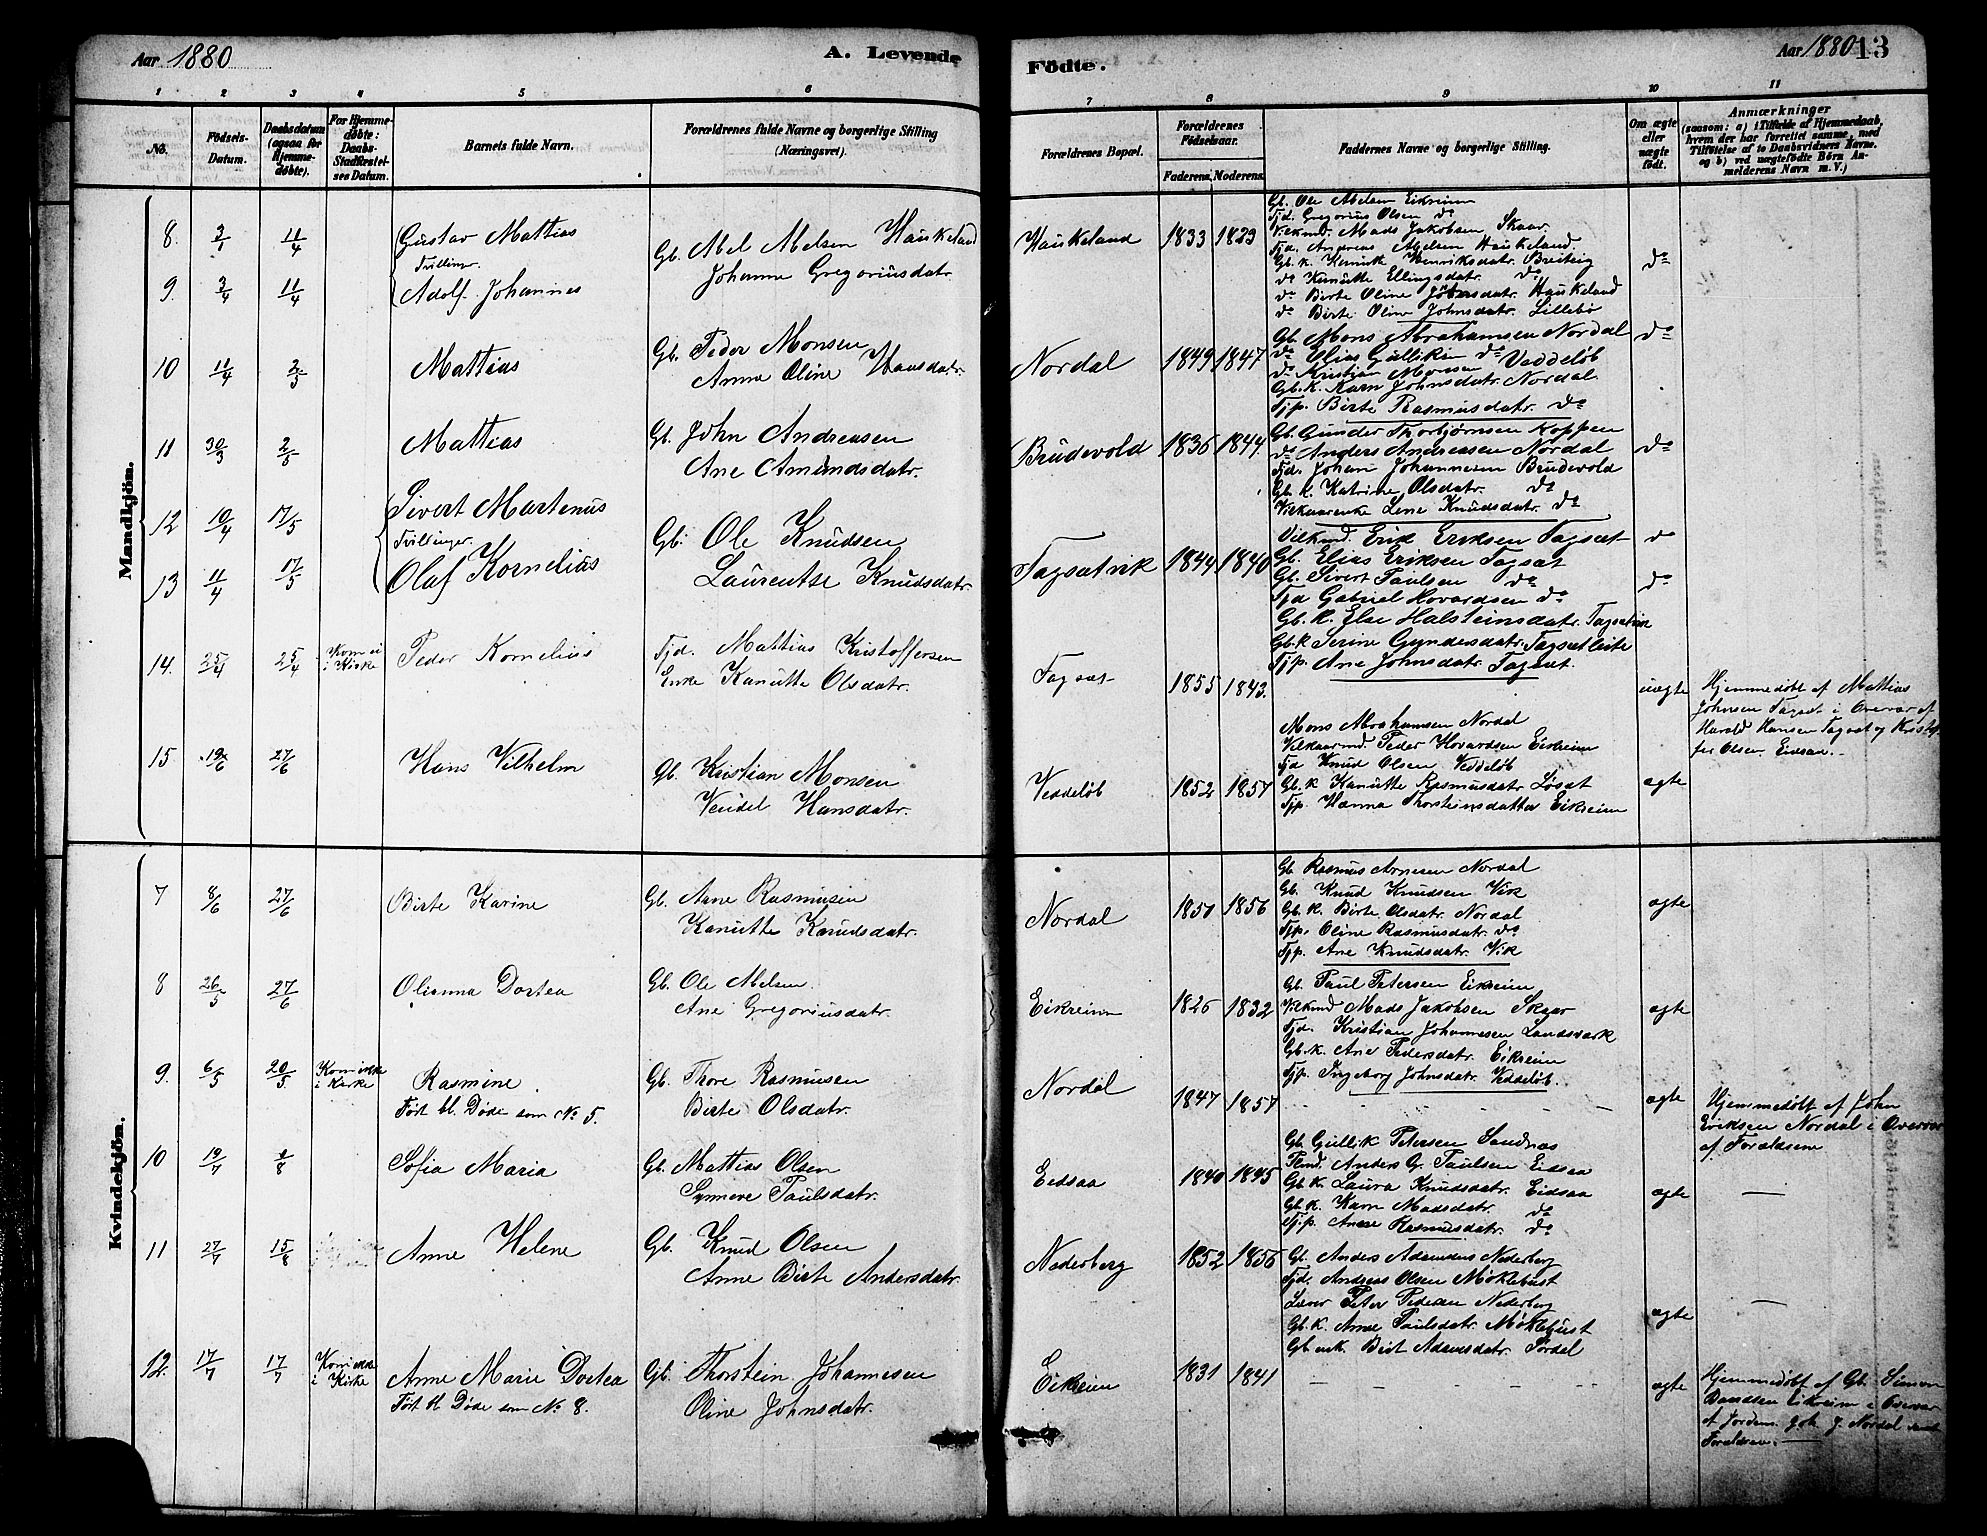 Aar 1880
A. Levende
Födte.
Aar 1880
13
1 2 3 4 5 6 7 8 9 10 11
No.
Födsels-Datum.
Daabsdatum (ogsaa for Hjemmedøbte).
For Hjemmedøbte: Daabs-Stadfæstelses Datum.
Barnets fulde Navn.
Forældrenes fulde Navne og borgerlige Stilling (Næringsvei).
Forældrenes Bopæl.
Forældrenes Födselsaar.
Faderens. Moderens.
Faddernes Navne og borgerlige Stilling.
Om ægte eller uægte födt.
Anmærkninger
(saasom: a) i Tilfælde af Hjemmedaab, hvem der har forrettet samme, med Tilføielse af to Daabsvidners Navne, og b) ved uægtefødte Börn Anmelderens Navn m. V.)
Mandkjön.
8. 11/4 Gustav Mattias
Tvillinger.
Gb. Abel Abelsen Haukeland
Johanne Gregoriusdatr
Haukeland 1833 1829
Gb. Ole Abelsen Eikreim
Tjd. Gregorius Olsen do
Vilkmd. Mads Jakobsen Skaar
Tjd. Andreas Abelsen Haukeland
Gb. k. Henriksdatr. Breiteig
do Kanutte Ellingsdatr. do
do Birte Oline Haukeland
do Birte Oline Johnsdatr. Lillebø
do
9. 3/4 11/4 Adolf Johannes
10 11/4 2/5 Mattias
Gb. Peder Monsen
Anne Oline Hansdatr.
Nordal 1849 1847
Gb. Mons Abrahamsen Nordal
do Elias Gulliksen do
do Kristian Monsen Veddeløb
Gb. K. Karn Johnsdatr. Nordal
Tjp. Birte Rasmusdatr. do
do
11 30/3 2/5 Mattias
Gb. John Andreasen
Ane Amundsdatr.
Brudevold 1836 1844
Gb. Gunder Thorbjørnsen Koppen
do Anders Andreasen Nordal
Tjd. Johan Johannesen Brudevold
Gb. k. Katrine Olsdatr. do
Vilkaarenke Lene Knudsdatr. do
do
12 10/4 17/5 Sivert Martenus
Tvillinger.
13 11/4 17/5 Olaf Kornelius
Gb. Ole Knudsen
Laurentse Knudsdatr.
Tagsatvik 1844 1840
Vilkmd. Erik Eriksen Tagsæt
Gb. Elias Eriksen Tagsæt
Gb. Sivert Paulsen do
Tjd Gabriel Hovardsen do
Gb. K. Else Halsteinsdatr. Tagsatvik
Gb. k Serine Gundesdatr. Tagsatleite
Tjp. Ane Johnsdatr. Tagsæt.
do
do
14. 25/4 25/4 Kom ei i Kirke
Peder Kornelius
Tjd. Mattias Kristoffersen
Enke Kanutte Olsdatr.
Tagsæt 1855 1843.
uægte
Hjemmedøbt af Mattias
Johnsen Tagsæt i Overvær af
Harald Hansen Tagsæt og Kristof
fer Olsen Eidsaa.
15 27/6 Hans Vilhelm
Gb. Kristian Monsen
Vendel Hansdatr.
Veddeløb 1852 1857
Mons Abrahamsen Nordal
Vilkaarmd. Peder Hovardsen Eikreim
Tjd Knud Olsen Veddeløb
Gb. k Kanutte Rasmusdatr Løset
Tjp. Hanna Thorsteinsdatter Eikreim
ægte
Kvindekjön.
7 8/6 27/6 Birte Karine
Gb. Arne Rasmusen
Kanutte Knudsdatr.
Nordal 1851 1856
Gb Rasmus Arnesen Nordal
Gb. Knud Knudsen Vik
Gb. K. Birte Olsdatr. Nordal
Tjp. Oline Rasmusdatr. do
Tjp. Ane Knudsdatr. Vik
ægte
8 26/5 27/6 Olianna Dortea
Gb. Ole Abelsen
Ane Gregoriusdatr.
Eikreim 1825 1832
Gb. Paul Petersen Eikreim
Vilkmd Mads Jakobsen Skaar
Tjd. Kristian Johannesen Landsverk
Gb. k. Ane Pedersdatr. Eikreim
Tjp. Ingeborg Johnsdatr. Veddeløb.
ægte
9. 6/5 20/5 Kom ikke i Kirke
Rasmine
Ført bl. Døde som No 5.
Gb. Thore Rasmusen
Birte Olsdatr.
Nordal 1847 1857
ægte
Hjemmedøbt af John
Eriksen Nordal i Overvær
af Forældrene
10 19/7 1/8 Sofia Maria
Gb. Mattias Olsen
Synneve Paulsdatr.
Eidsaa 1840 1845
Gb. Gullik Petersen Sandnæs
Anders Gr. Paulsen Eidsaa
Gb. K. Laura Knudsdatr. Eidsaa
Gb. k. Karn Madsdatr. do
Tjp. Anne Rasmusdatr. do
ægte
11 27/7 15/8 Anne Helene
Gb. Knud Olsen
Anne Birte Andersdatr.
Nederberg 1852 1856
Gb. Anders Nederberg
Tjd. Andreas Olsen Møklebust
Lærer Peter Pedersen Nederberg
Gb. K. Anne Paulsdatr. Møklebust
Gb. enk. Birt Adamsdatr. Sørdal
ægte
12. 17/7 17/7 Kom ikke i Kirke
Anne Marie Dortea
Ført bl Døde som No 8.
Gb. Thorstein Johannesen
Oline Johnsdatr.
Eikreim 1831 1841
ægte
Hjemmedøbt af Gb. Simon
Eikreim i Overvær
af Jordem. Joh. J. Nordal samt
Forældrene.